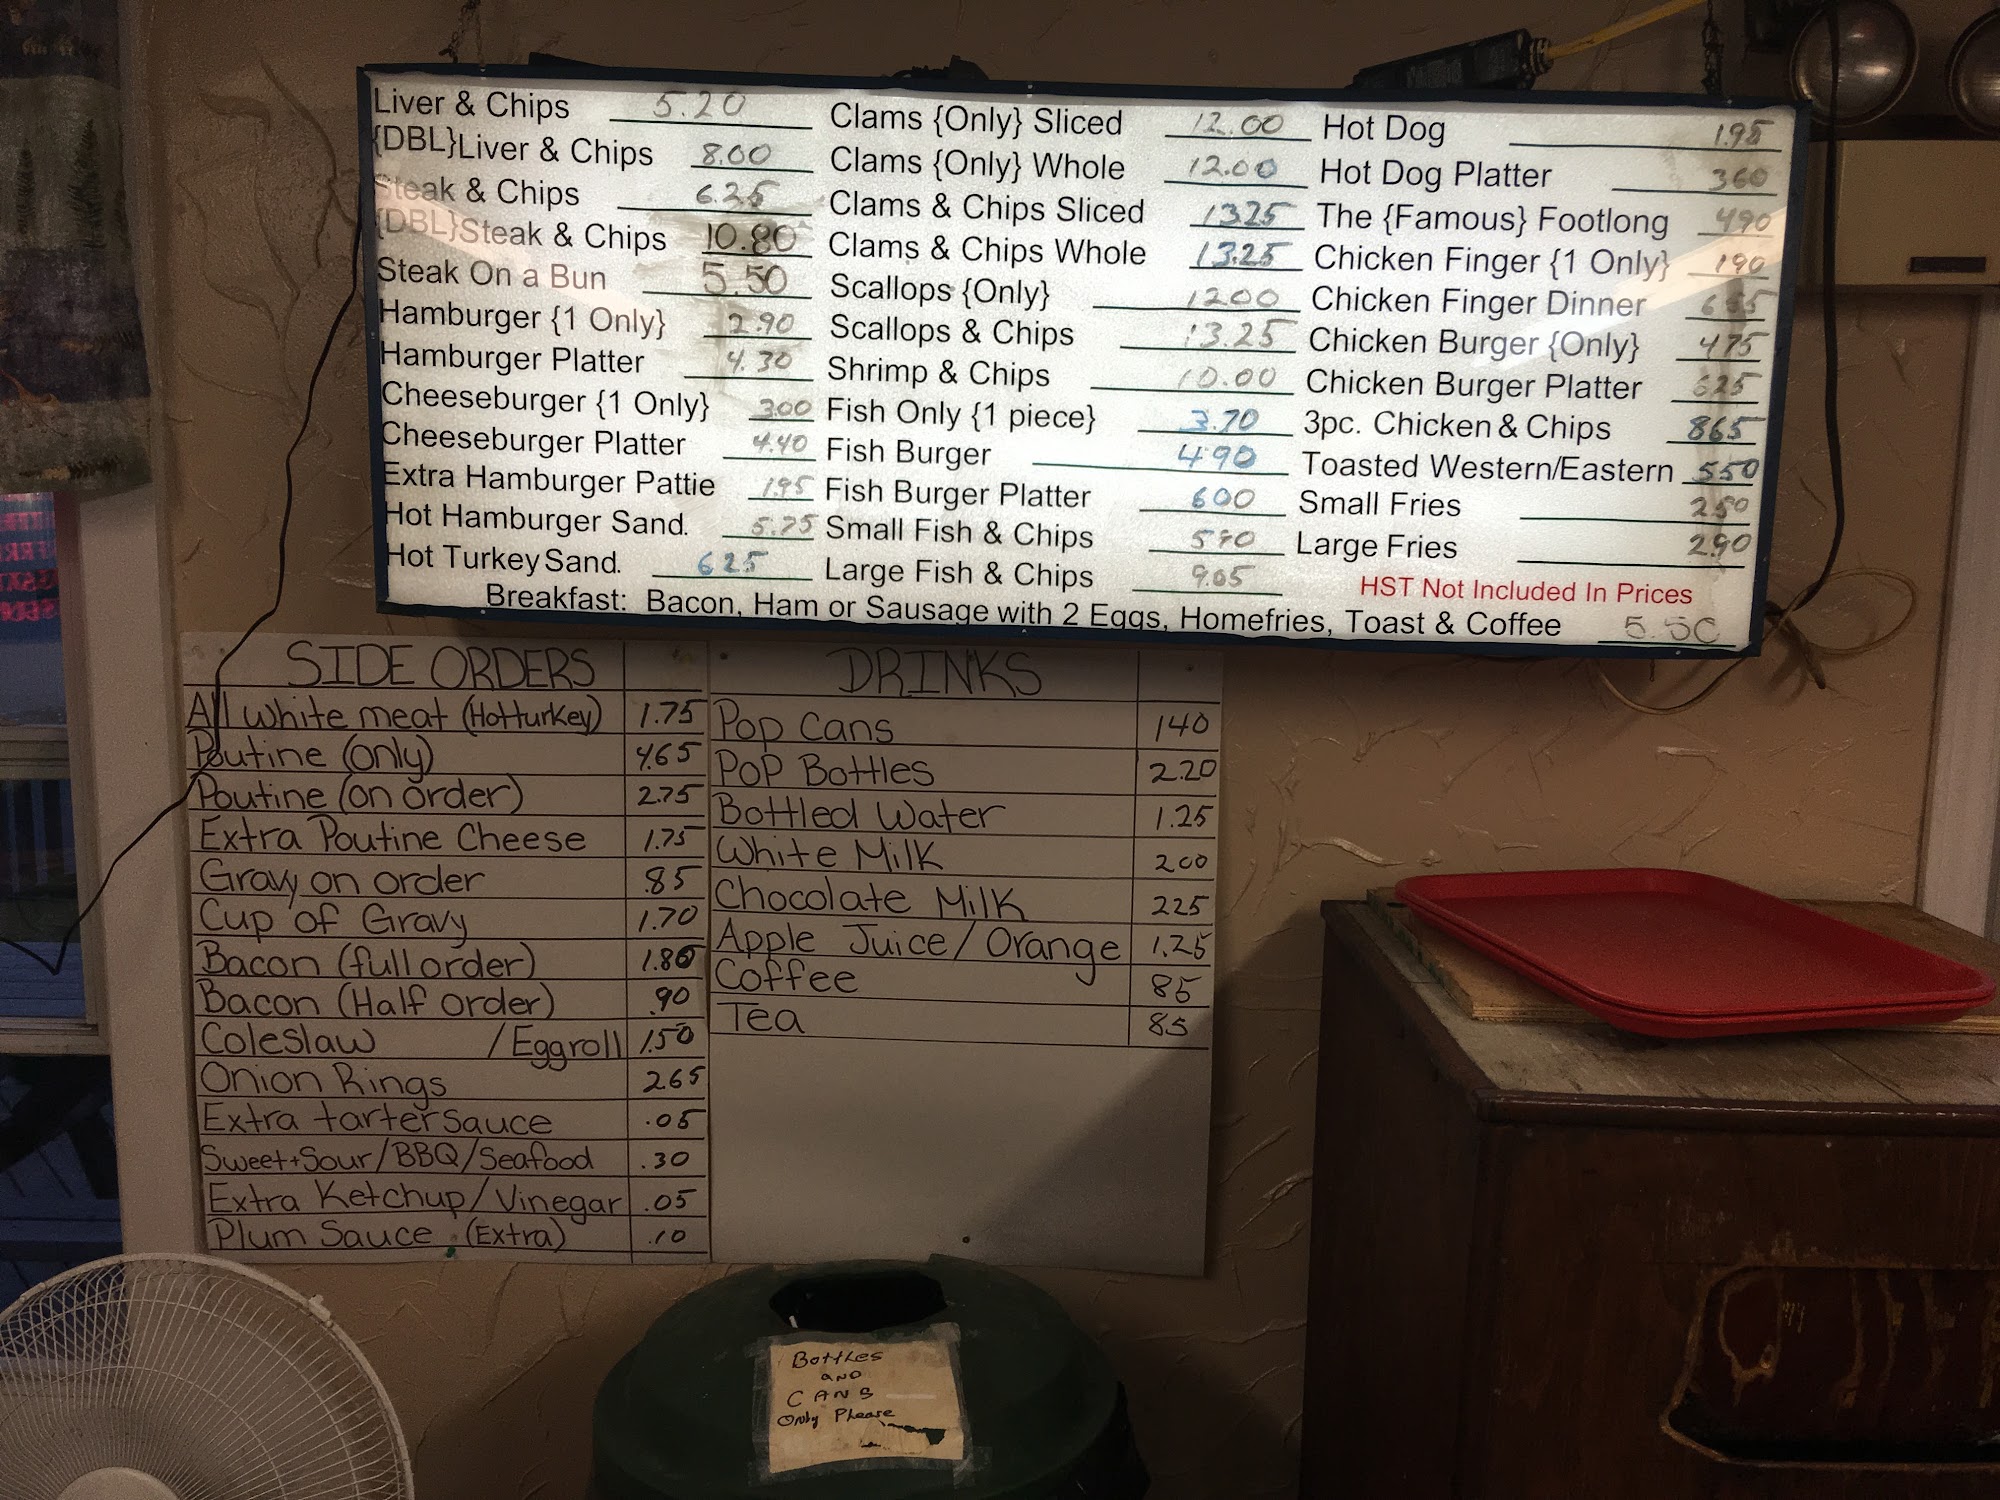 Liver & Chips 5.20
{DBL}Liver & Chips 8.00
Steak & Chips 6.25
{DBL}Steak & Chips 10.80
Steak On a Bun 5.50
Hamburger {1 Only} 2.90
Hamburger Platter 4.30
Cheeseburger {1 Only} 3.00
Cheeseburger Platter 4.40
Extra Hamburger Pattie 1.95
Hot Hamburger Sand. 5.75
Hot Turkey Sand. 6.25
Clams {Only} Sliced 12.00
Clams {Only} Whole 12.00
Clams & Chips Sliced 13.25
Clams & Chips Whole 13.25
Scallops {Only} 12.00
Scallops & Chips 13.25
Shrimp & Chips 10.00
Fish Only {1 piece} 3.70
Fish Burger 4.90
Fish Burger Platter 600
Small Fish & Chips 590
Large Fish & Chips 9.05
Hot Dog 1.95
Hot Dog Platter 360
The {Famous} Footlong 490
Chicken Finger {1 Only} 190
Chicken Finger Dinner
Chicken Burger {Only} 475
Chicken Burger Platter 625
3pc. Chicken & Chips 865
Toasted Western/Eastern 550
Small Fries 250
Large Fries 290
HST Not Included In Prices
Breakfast: Bacon, Ham or Sausage with 2 Eggs, Homefries, Toast & Coffee 5.50
SIDE ORDERS
All white meat (Hot turkey) 1.75
Poutine (only) 4.65
Poutine (on order) 2.75
Extra Poutine Cheese 1.75
Gravy on order .85
Cup of Gravy 1.70
Bacon (full order) 1.80
Bacon (Half order) .90
Coleslaw /Eggroll 1.50
Onion Rings 265
Extra tarter sauce .05
Sweet+Sour/BBQ/Seafood .30
Extra Ketchup/Vinegar .05
Plum Sauce (Extra) .10
DRINKS
Pop Cans 140
PoP Bottles 2.20
Bottled Water 1.25
White Milk 200
Chocolate Milk 225
Apple Juice/Orange 1.25
Coffee 85
Tea 85
Bottles
and
CANS
Only Please